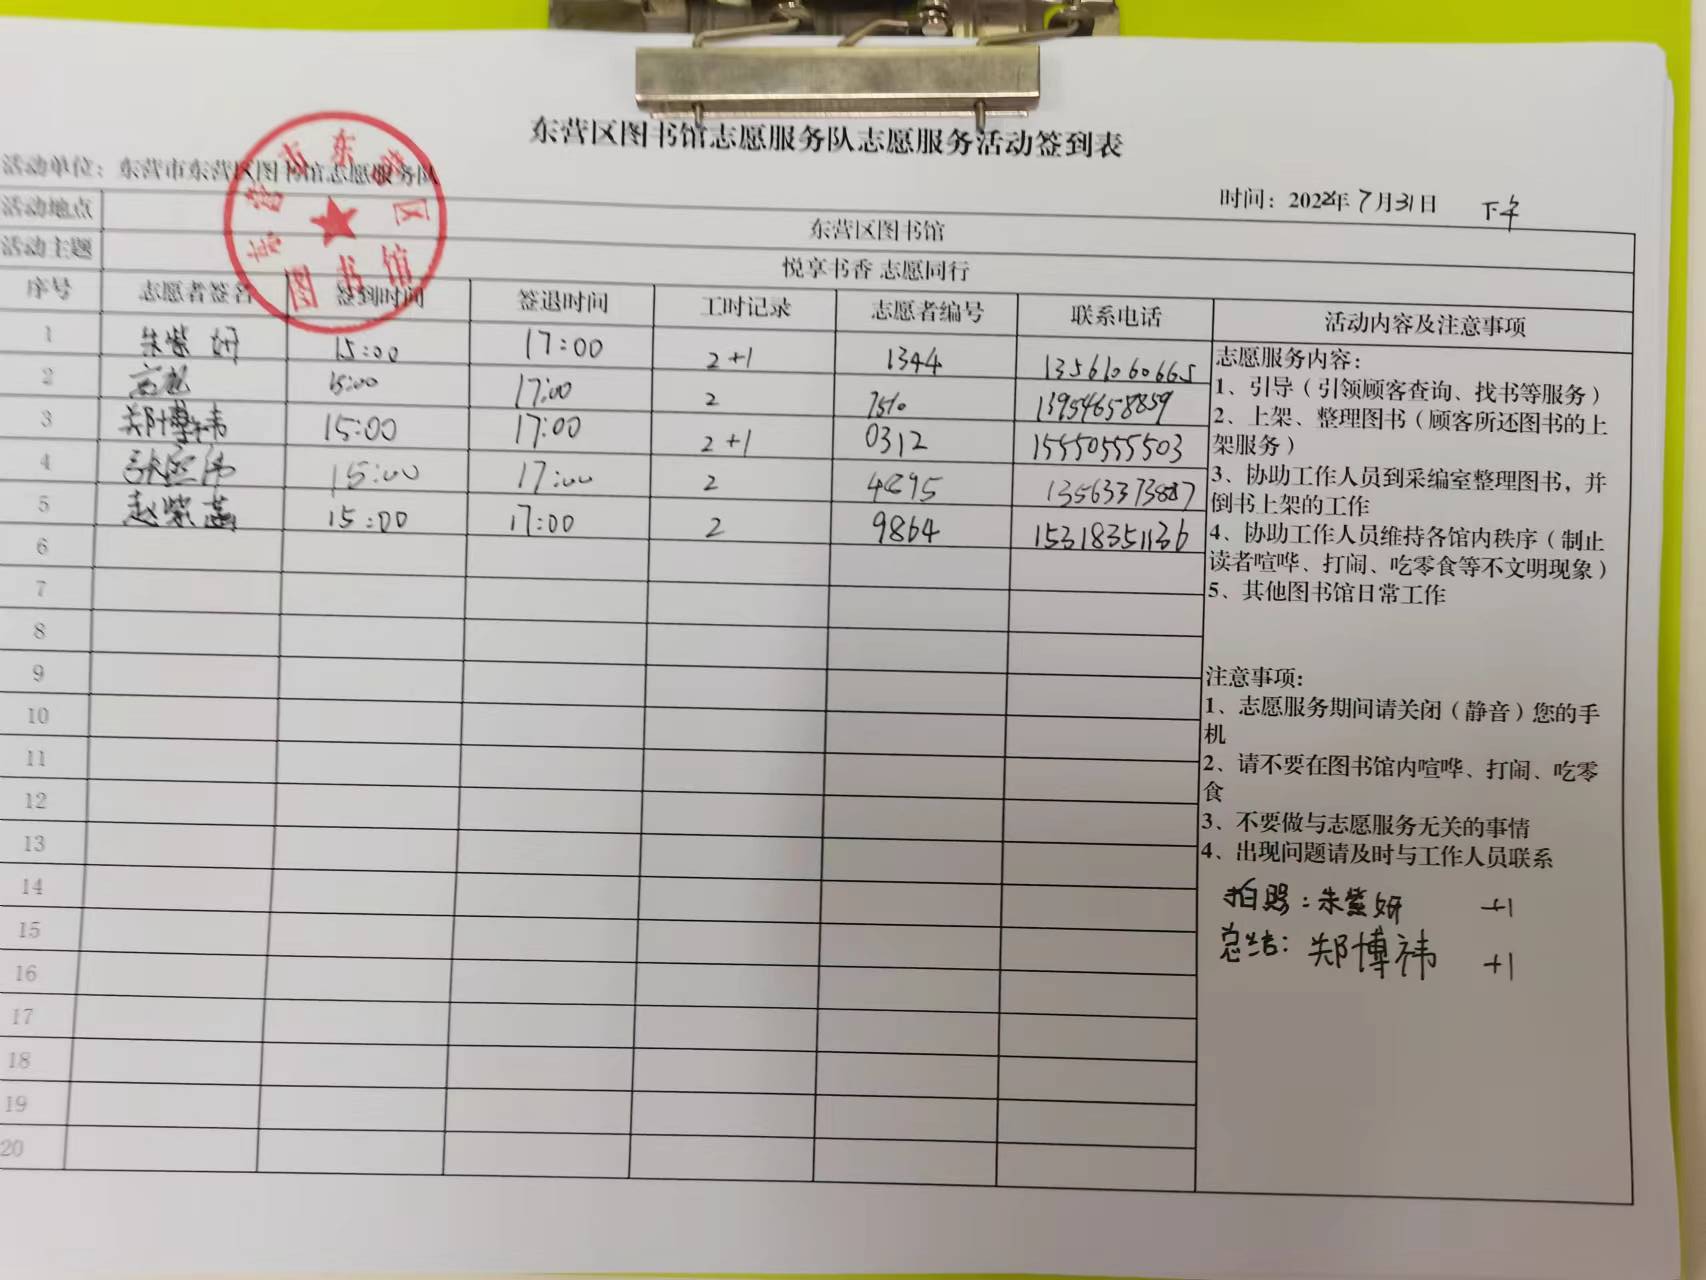 东营区图书馆志愿服务队志愿服务活动签到表
活动单位：东营市东营区图书馆志愿服务队
时间：2022年7月31日 下午
活动地点 东营区图书馆
活动主题 悦享书香 志愿同行
序号 志愿者签名 签到时间 签退时间 工时记录 志愿者编号 联系电话 活动内容及注意事项
1 朱紫妍 15:00 17:00 2+1 1344 13561060665
2 15:00 17:00 2 13954658859
3 郑博祎 15:00 17:00 2+1 0312 15550555503
4 15:00 17:00 2
5 赵紫菡 15:00 17:00 2 9864 15318351136
6
7
8
9
10
11
12
13
14
15
16
17
18
19
20
志愿服务内容：
1、引导（引领顾客查询、找书等服务）
2、上架、整理图书（顾客所还图书的上
架服务）
3、协助工作人员到采编室整理图书，并
倒书上架的工作
4、协助工作人员维持各馆内秩序（制止
读者喧哗、打闹、吃零食等不文明现象）
5、其他图书馆日常工作
注意事项：
1、志愿服务期间请关闭（静音）您的手
机
2、请不要在图书馆内喧哗、打闹、吃零
食
3、不要做与志愿服务无关的事情
4、出现问题请及时与工作人员联系
拍照：朱紫妍 +1
总结：郑博祎 +1
东营市东营区
图书馆